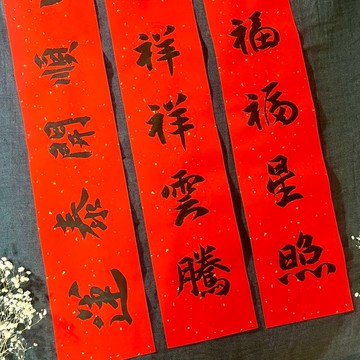 福福星照
祥祥雲騰
順開泰運